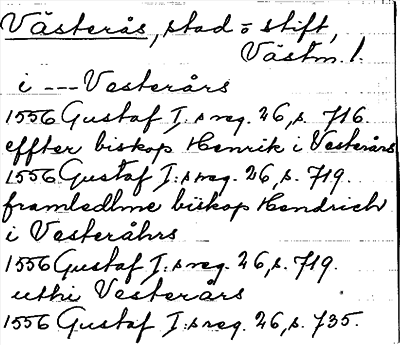 Västerås, stad o stift,
Västm. l.
i --- Vesterårs
1556 Gustaf I:s reg. 26, s. 716.
effter biskop Henrik i Vesterårs
1556 Gustaf I:s reg. 26, s. 719.
framledhne biskop Hendrich
i Vesteråhrs
1556 Gustaf I:s reg. 26, s. 719.
uthi Vesterårs
1556 Gustaf I:s reg. 26, s. 735.